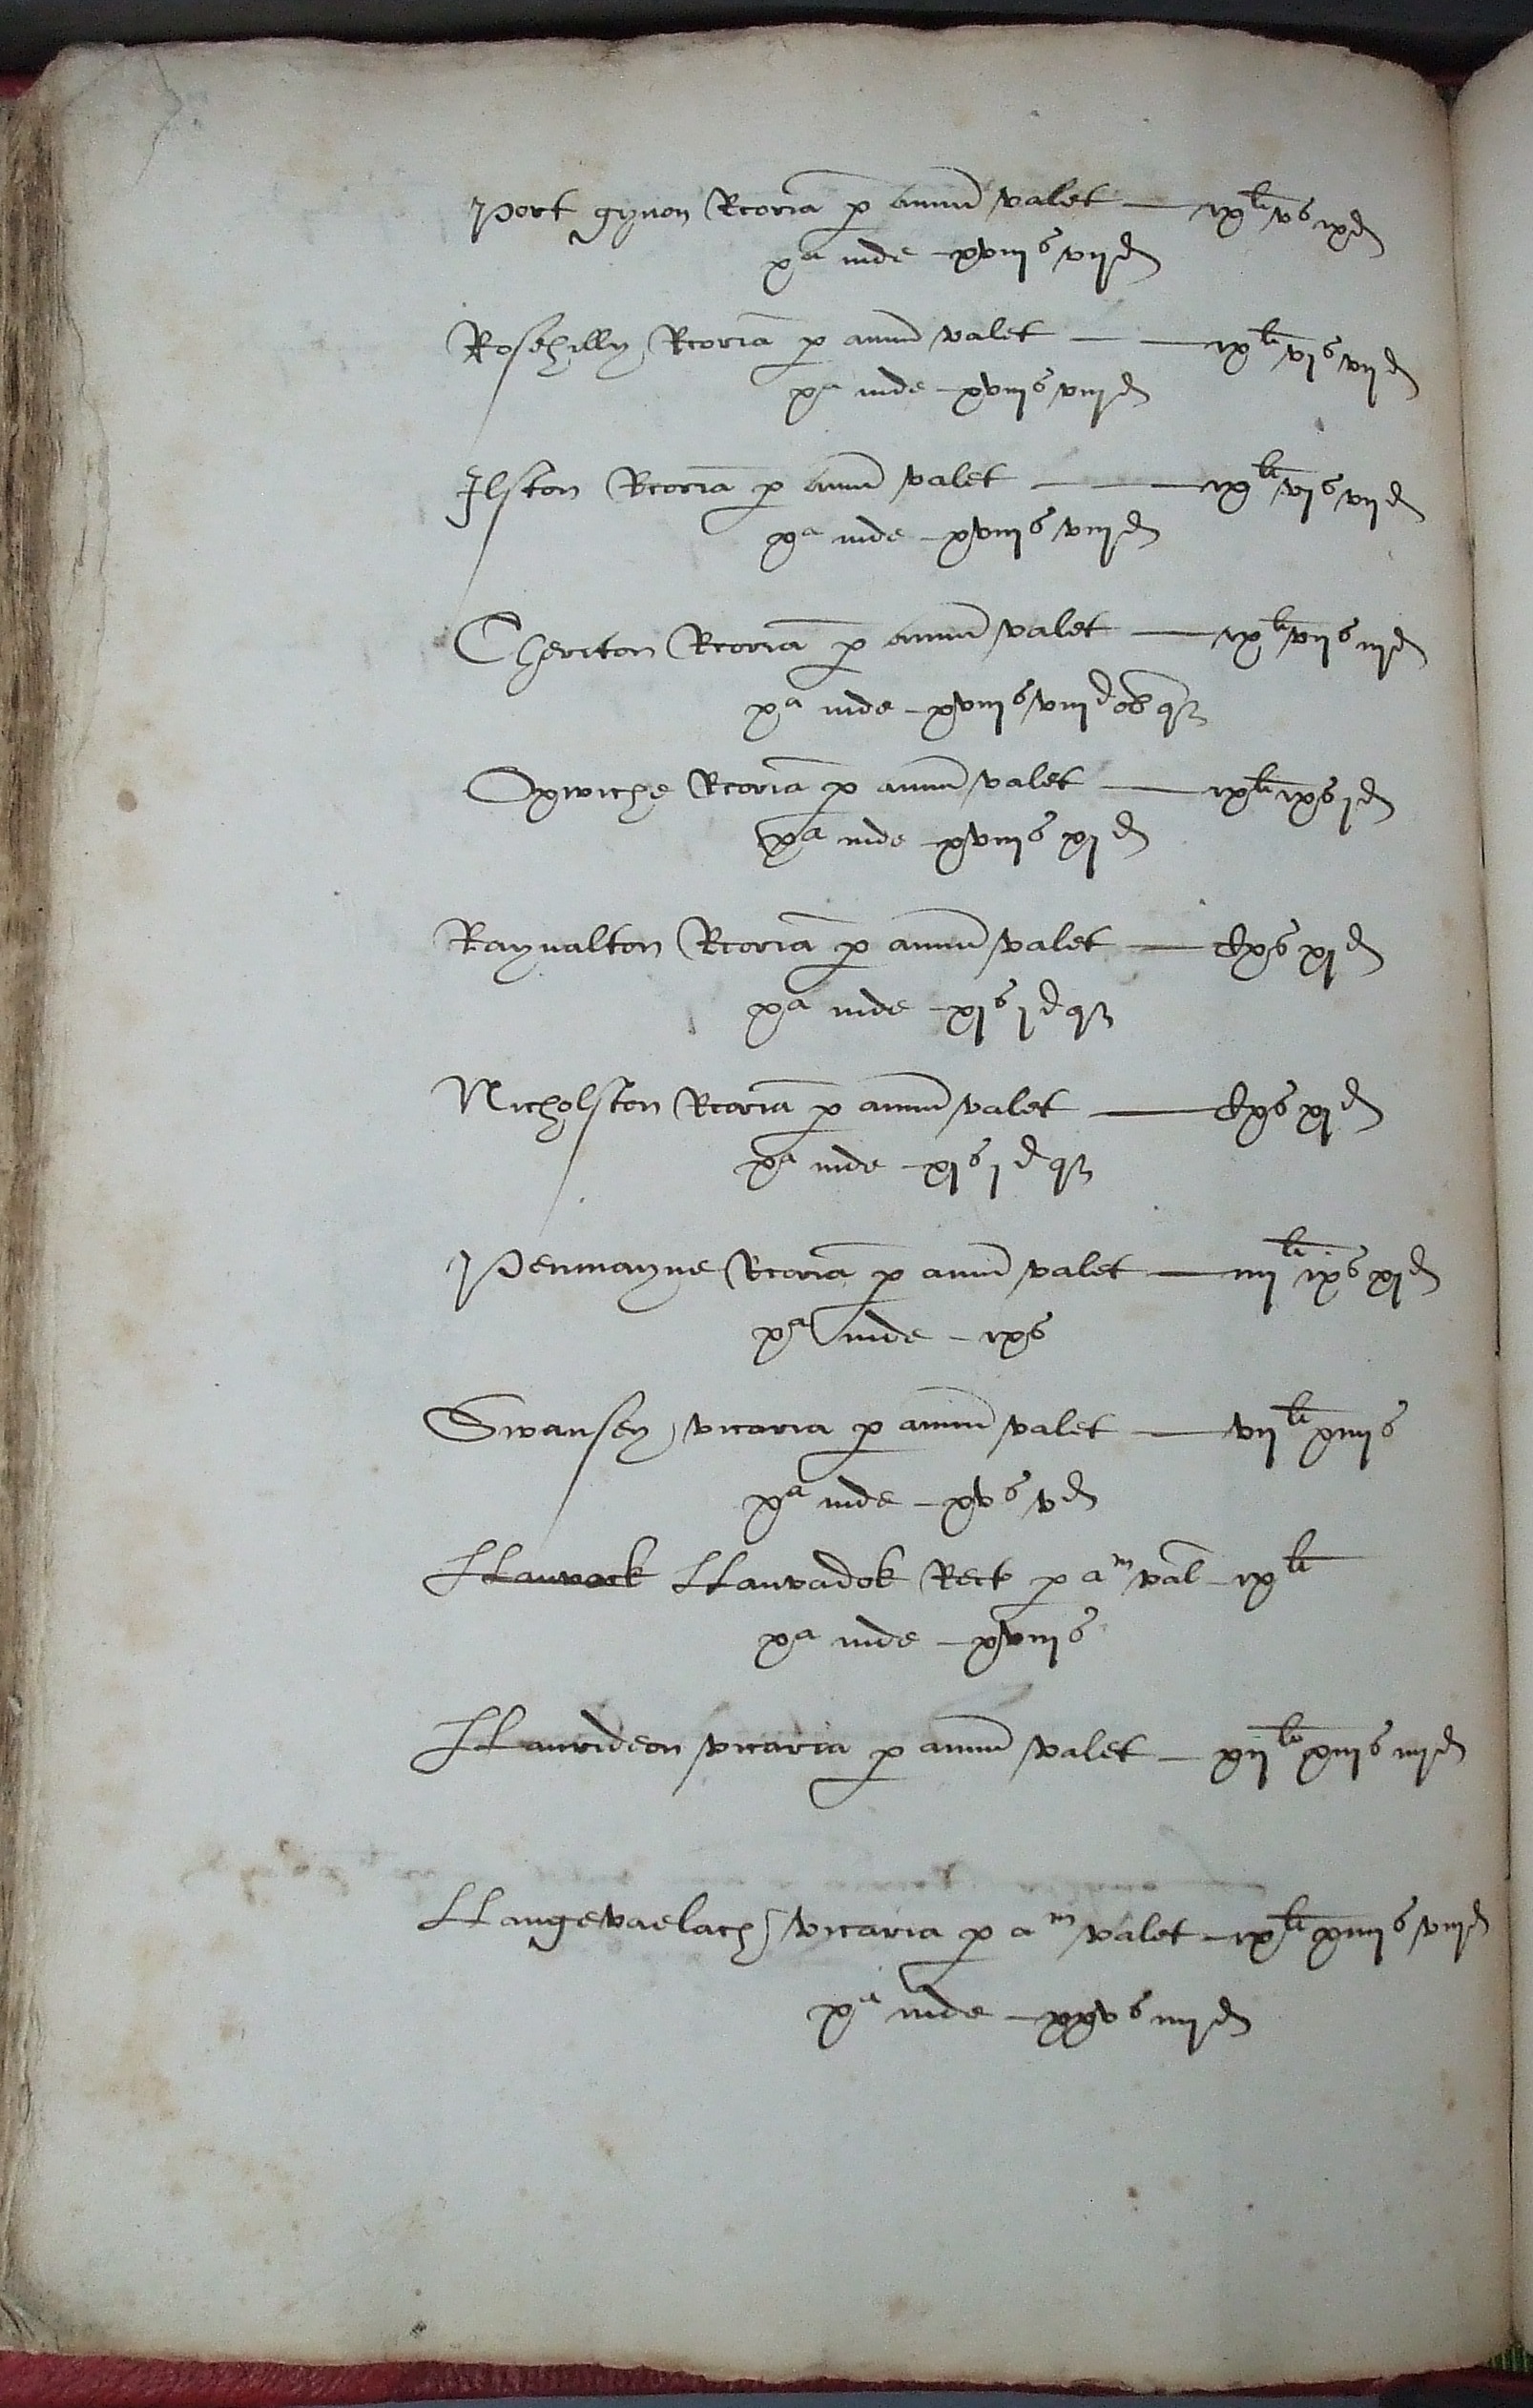 Port gynon Rcoria p annu valet — ix li vs ixd
xa inde – xviijs vijd
Rosehylly Rcoria p annu valet — ix li vjs vijd
xa inde – xviijs viijd
Ilston Rcoria p annu valet — ix li vjs vijd
xa inde – xviijs viijd
Cheriton Rcoria p annu valet — ix li vijs iijd
xa inde – xviijs viijd ob q3
Oxwiche Rcoria p annu valet — ix li ixs jd
xa inde – xviijs xjd
Raynalton Rcoria p annu valet — Cxs xjd
xa inde – xjs jd q3
Nicholston Rcoria p annu valet — Cxs xjd
xa inde – xjs jd q3
Penmayne Rcoria p annu valet — iiij li ixs xjd
xa inde – ixs
Swansey vicaria p annu valet — vij li xiiijs
xa inde – xvs vd
LLanvack LLanvadok Rect p am val – ix li
xa inde – xviijs
LLanrideon vicaria p annu valet – xij li xiijs iiijd
LLangevaelach vicaria p am valet – ix li xiiijs viijd
xa inde – xxvs iiijd